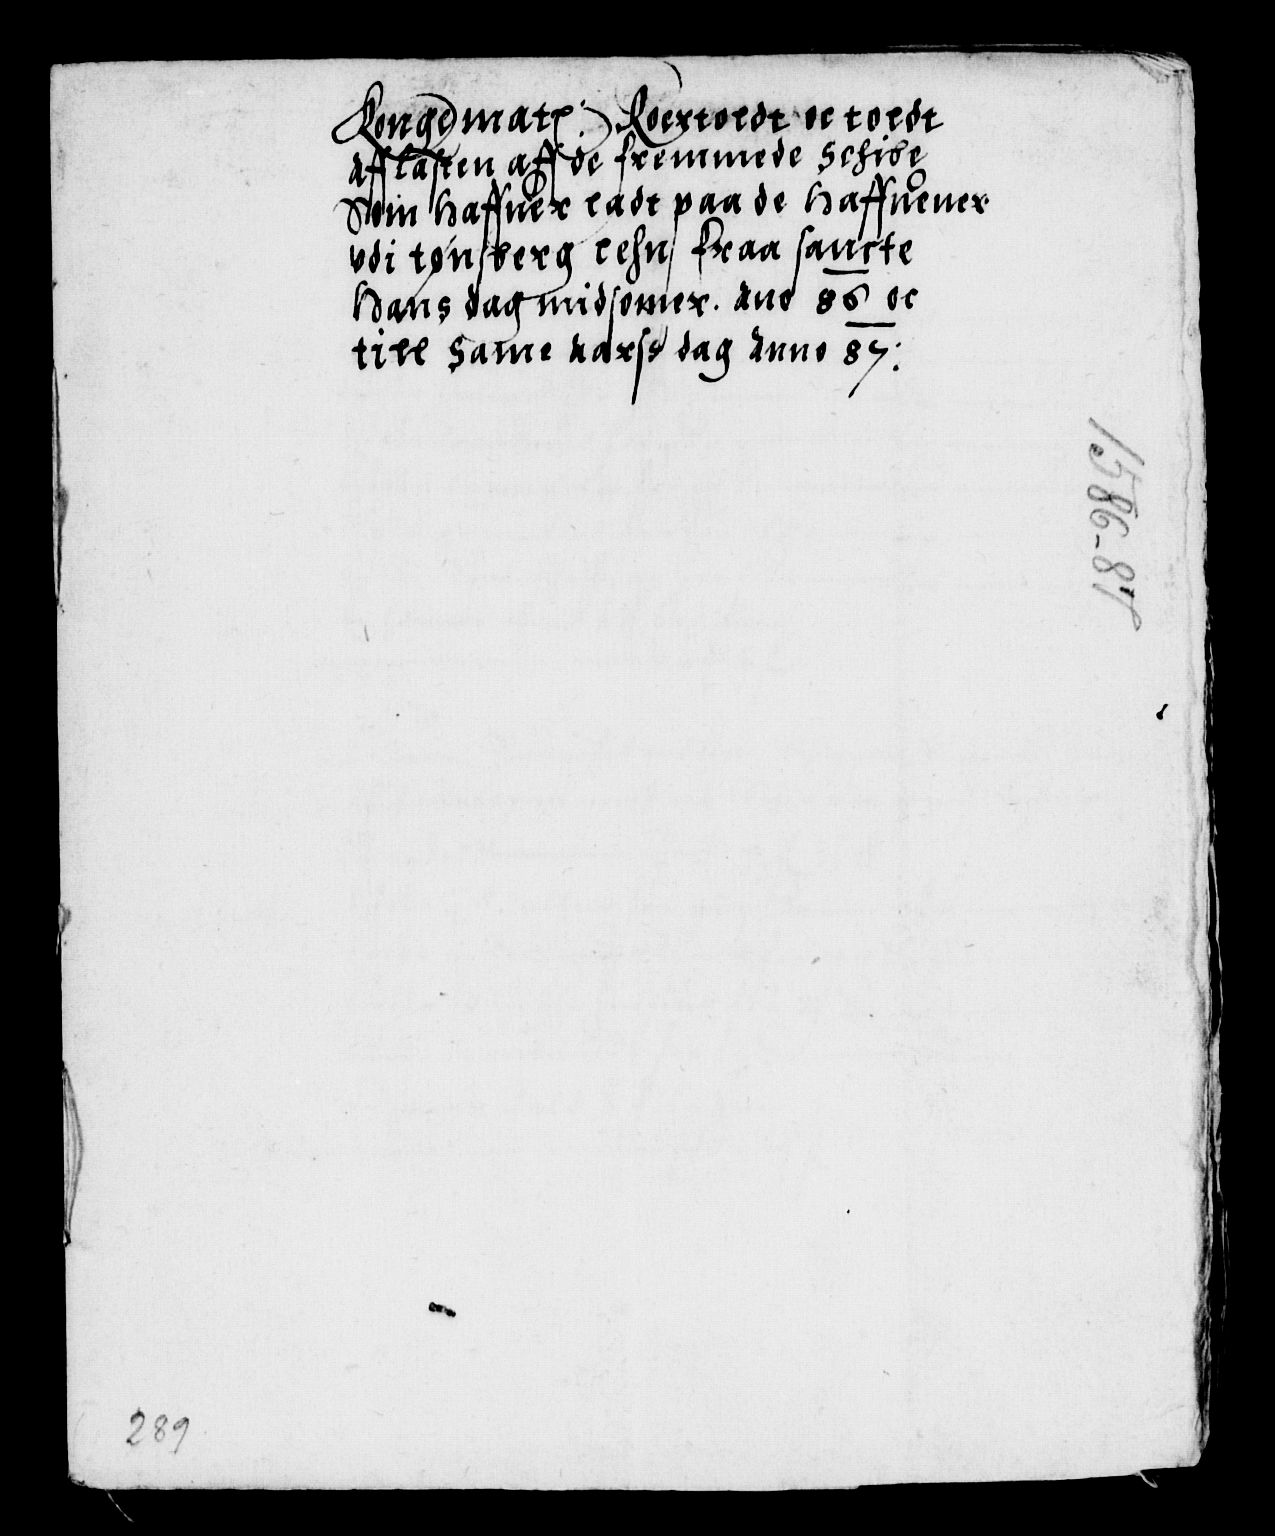 Konge Matz: Roertoldt oc toldt
aff lasten aff de fremmede Schibe
Som haffuer ladt paa de haffuener
vdi tønsberg lehn fraa sancte
Hans dag midsomer. Ano 86 oc
till Same aarss dag Anno 87:
1586-87
289